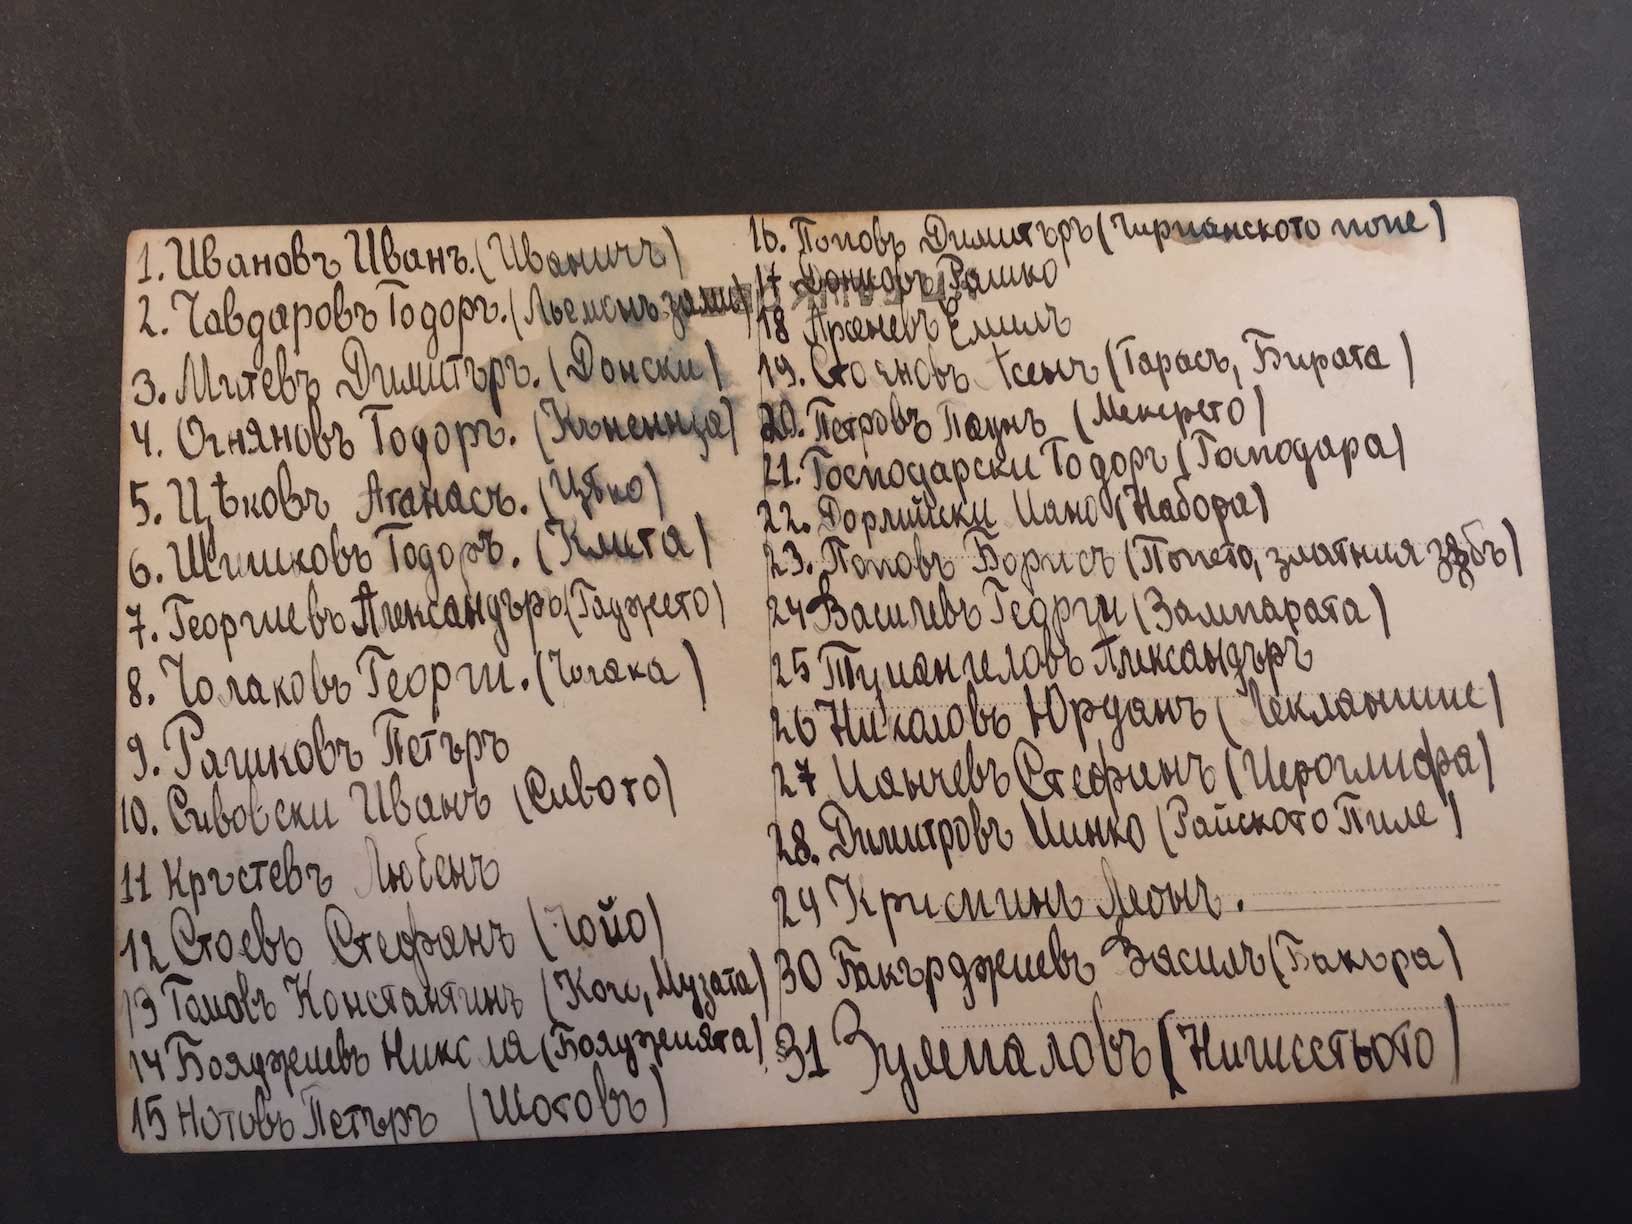 1. Ивановъ Иванъ. (Иваничъ)
2. Чавдаровъ Тодоръ. (
3. Митевъ Димитъръ. (Донски)
4. Огняновъ Тодоръ.
5. Цѣковъ Атанасъ. (Цѣко)
6. Шишковъ Тодоръ. (Кмета)
7. Георгиевъ Александъръ (Гаджето)
8. Чолаковъ Георги. (Чолака)
9. Рашковъ Петъръ
10. Сивовски Иванъ (Сивото)
11 Кръстевъ Любенъ
12 Стоевъ Стефанъ (Чойо)
13 Томовъ Константинъ (Музата)
14 Бояджиевъ Никола (Бояджията)
15 Нотовъ Петъръ (Шотовъ)
16. Поповъ Димитъръ (Чирпанското попе)
17 Рашко
18 Емилъ
19. Стояновъ Асенъ (Тарасъ, Бирата)
20. Петровъ Паунъ
21. Господарски Тодоръ (Господара)
22. Дорлийски (Набора)
23. Поповъ Борисъ (Попето, златния зѫбъ)
24 Василевъ Георги (Зампарата)
25 Александъръ
26 Николовъ Юрданъ
27 Иончевъ Стефанъ (Иероглифа)
28. Димитровъ Минко (Райското Пиле)
29
30 Бакърджиевъ Василъ (Бакъра)
31